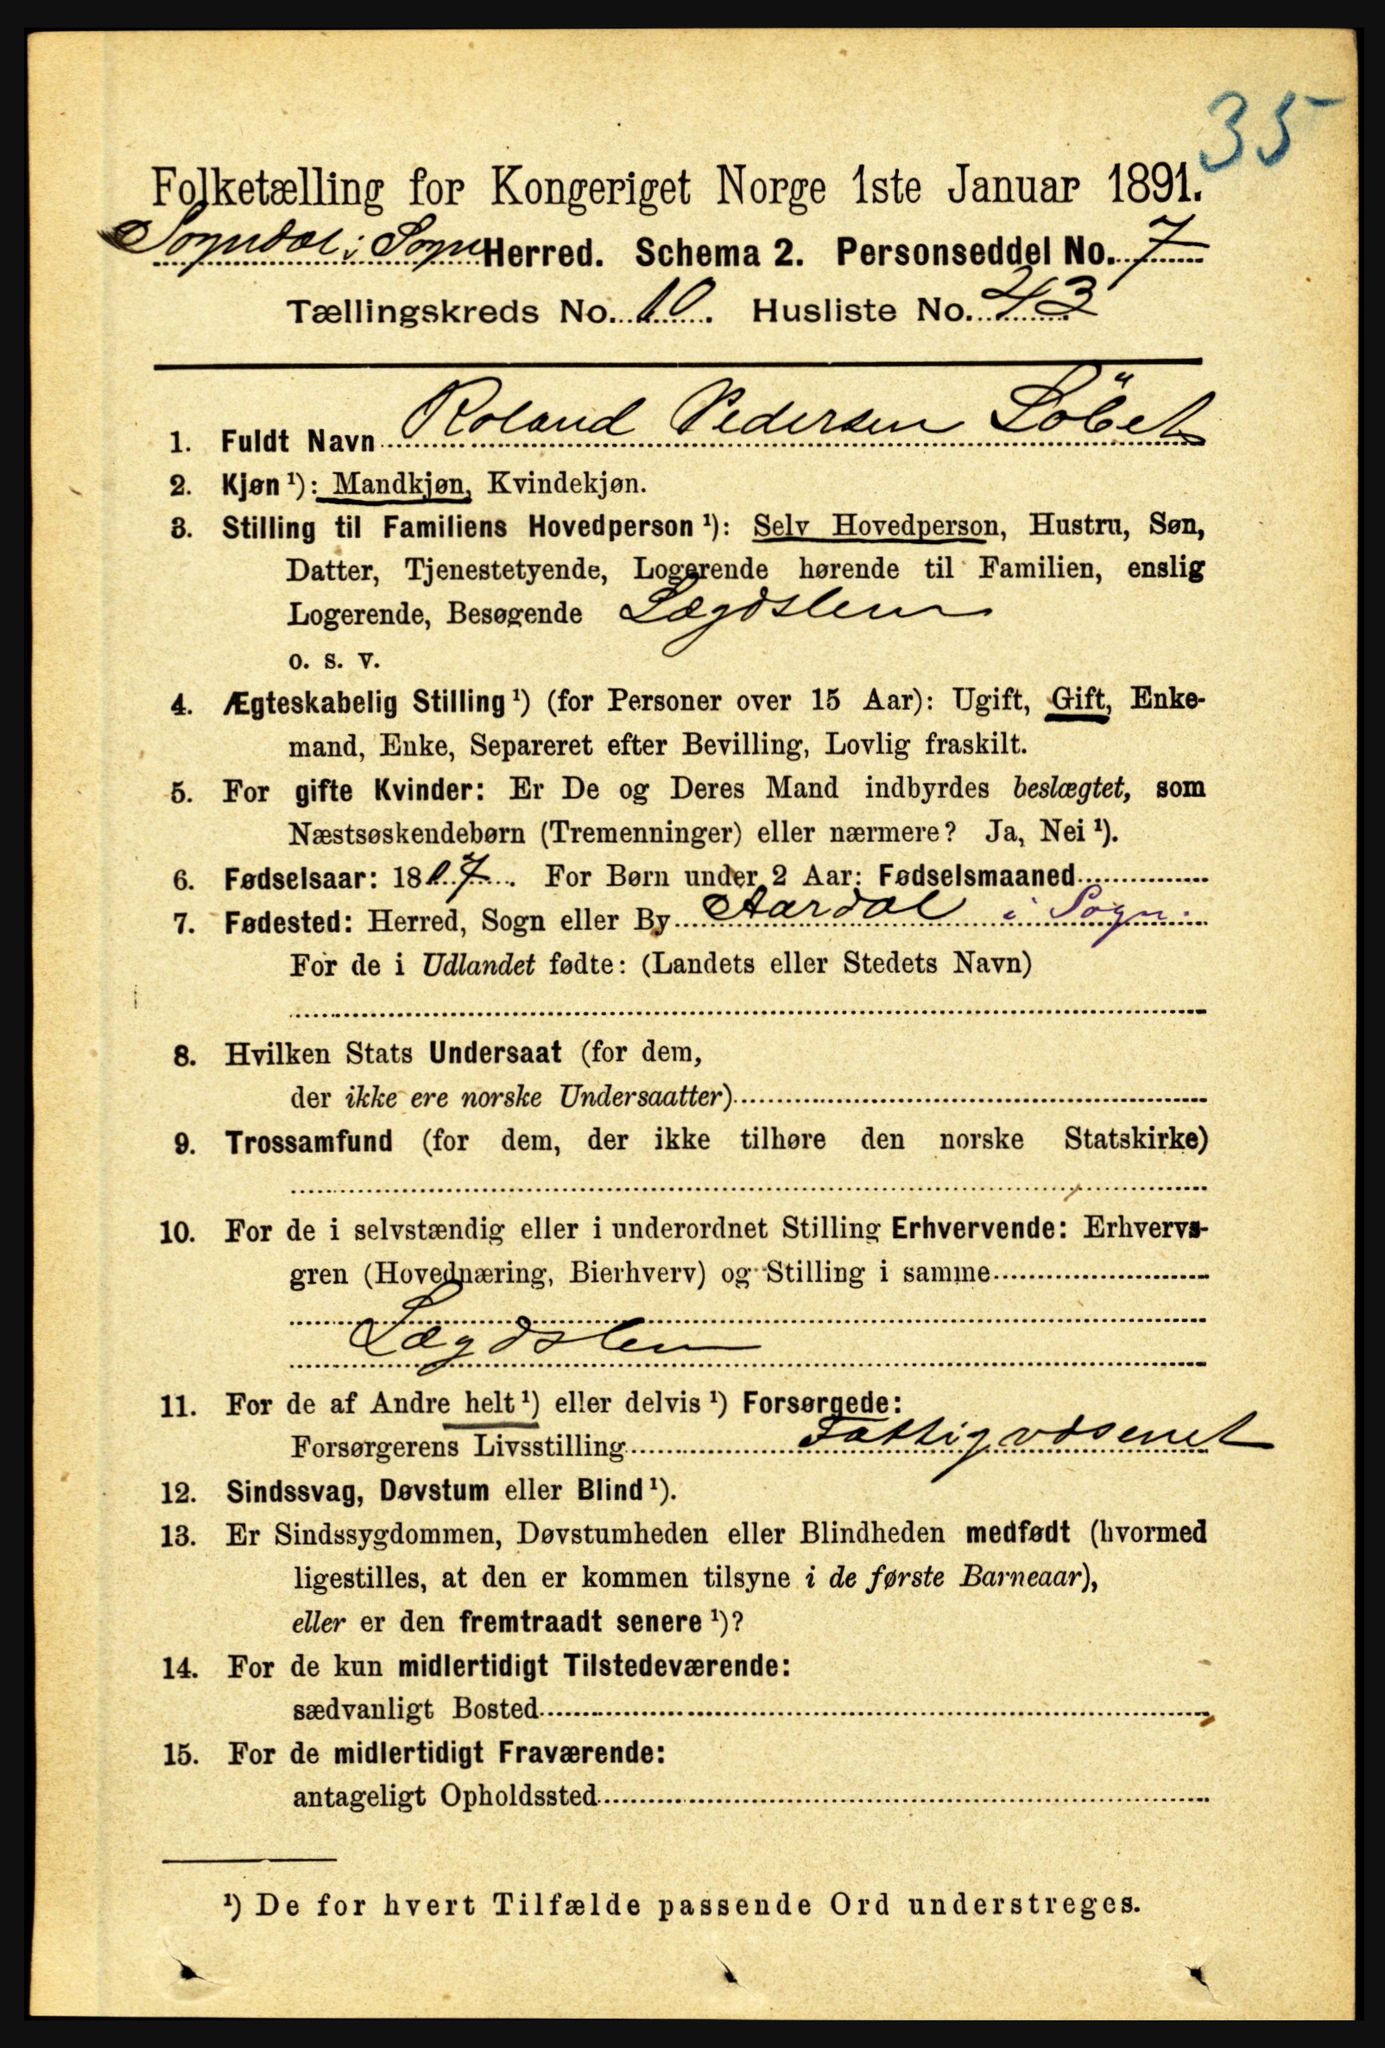 35
Folketælling for Kongeriget Norge 1ste Januar 1891.
Sogndal i Sogn Herred. Schema 2. Personseddel No. 7
Tællingskreds No. 10. Husliste No. 43
1. Fuldt Navn Roland Pedersen Löbet
2. Kjøn ¹): Mandkjøn, Kvindekjøn.
3. Stilling til Familiens Hovedperson ¹): Selv Hovedperson, Hustru, Søn,
Datter, Tjenestetyende, Logerende hørende til Familien, enslig
Logerende, Besøgende Lægdslem
o. s. v.
4. Ægteskabelig Stilling ¹) (for Personer over 15 Aar): Ugift, Gift, Enke-
mand, Enke, Separeret efter Bevilling, Lovlig fraskilt.
5. For gifte Kvinder: Er De og Deres Mand indbyrdes beslægtet, som
Næstsøskendebørn (Tremenninger) eller nærmere? Ja, Nei ¹).
6. Fødselsaar: 1817. For Børn under 2 Aar: Fødselsmaaned
7. Fødested: Herred, Sogn eller By Aardal i Sogn.
For de i Udlandet fødte: (Landets eller Stedets Navn)
8. Hvilken Stats Undersaat (for dem,
der ikke ere norske Undersaatter)
9. Trossamfund (for dem, der ikke tilhøre den norske Statskirke)
10. For de i selvstændig eller i underordnet Stilling Erhvervende: Erhvervs-
gren (Hovednæring, Bierhverv) og Stilling i samme
Lægdslem
11. For de af Andre helt ¹) eller delvis ¹) Forsørgede:
Forsørgerens Livsstilling Fattigvæsenet
12. Sindssvag, Døvstum eller Blind ¹).
13. Er Sindssygdommen, Døvstumheden eller Blindheden medfødt (hvormed
ligestilles, at den er kommen tilsyne i de første Barneaar),
eller er den fremtraadt senere ¹)?
14. For de kun midlertidigt Tilstedeværende:
sædvanligt Bosted
15. For de midlertidigt Fraværende:
antageligt Opholdssted
¹) De for hvert Tilfælde passende Ord understreges.